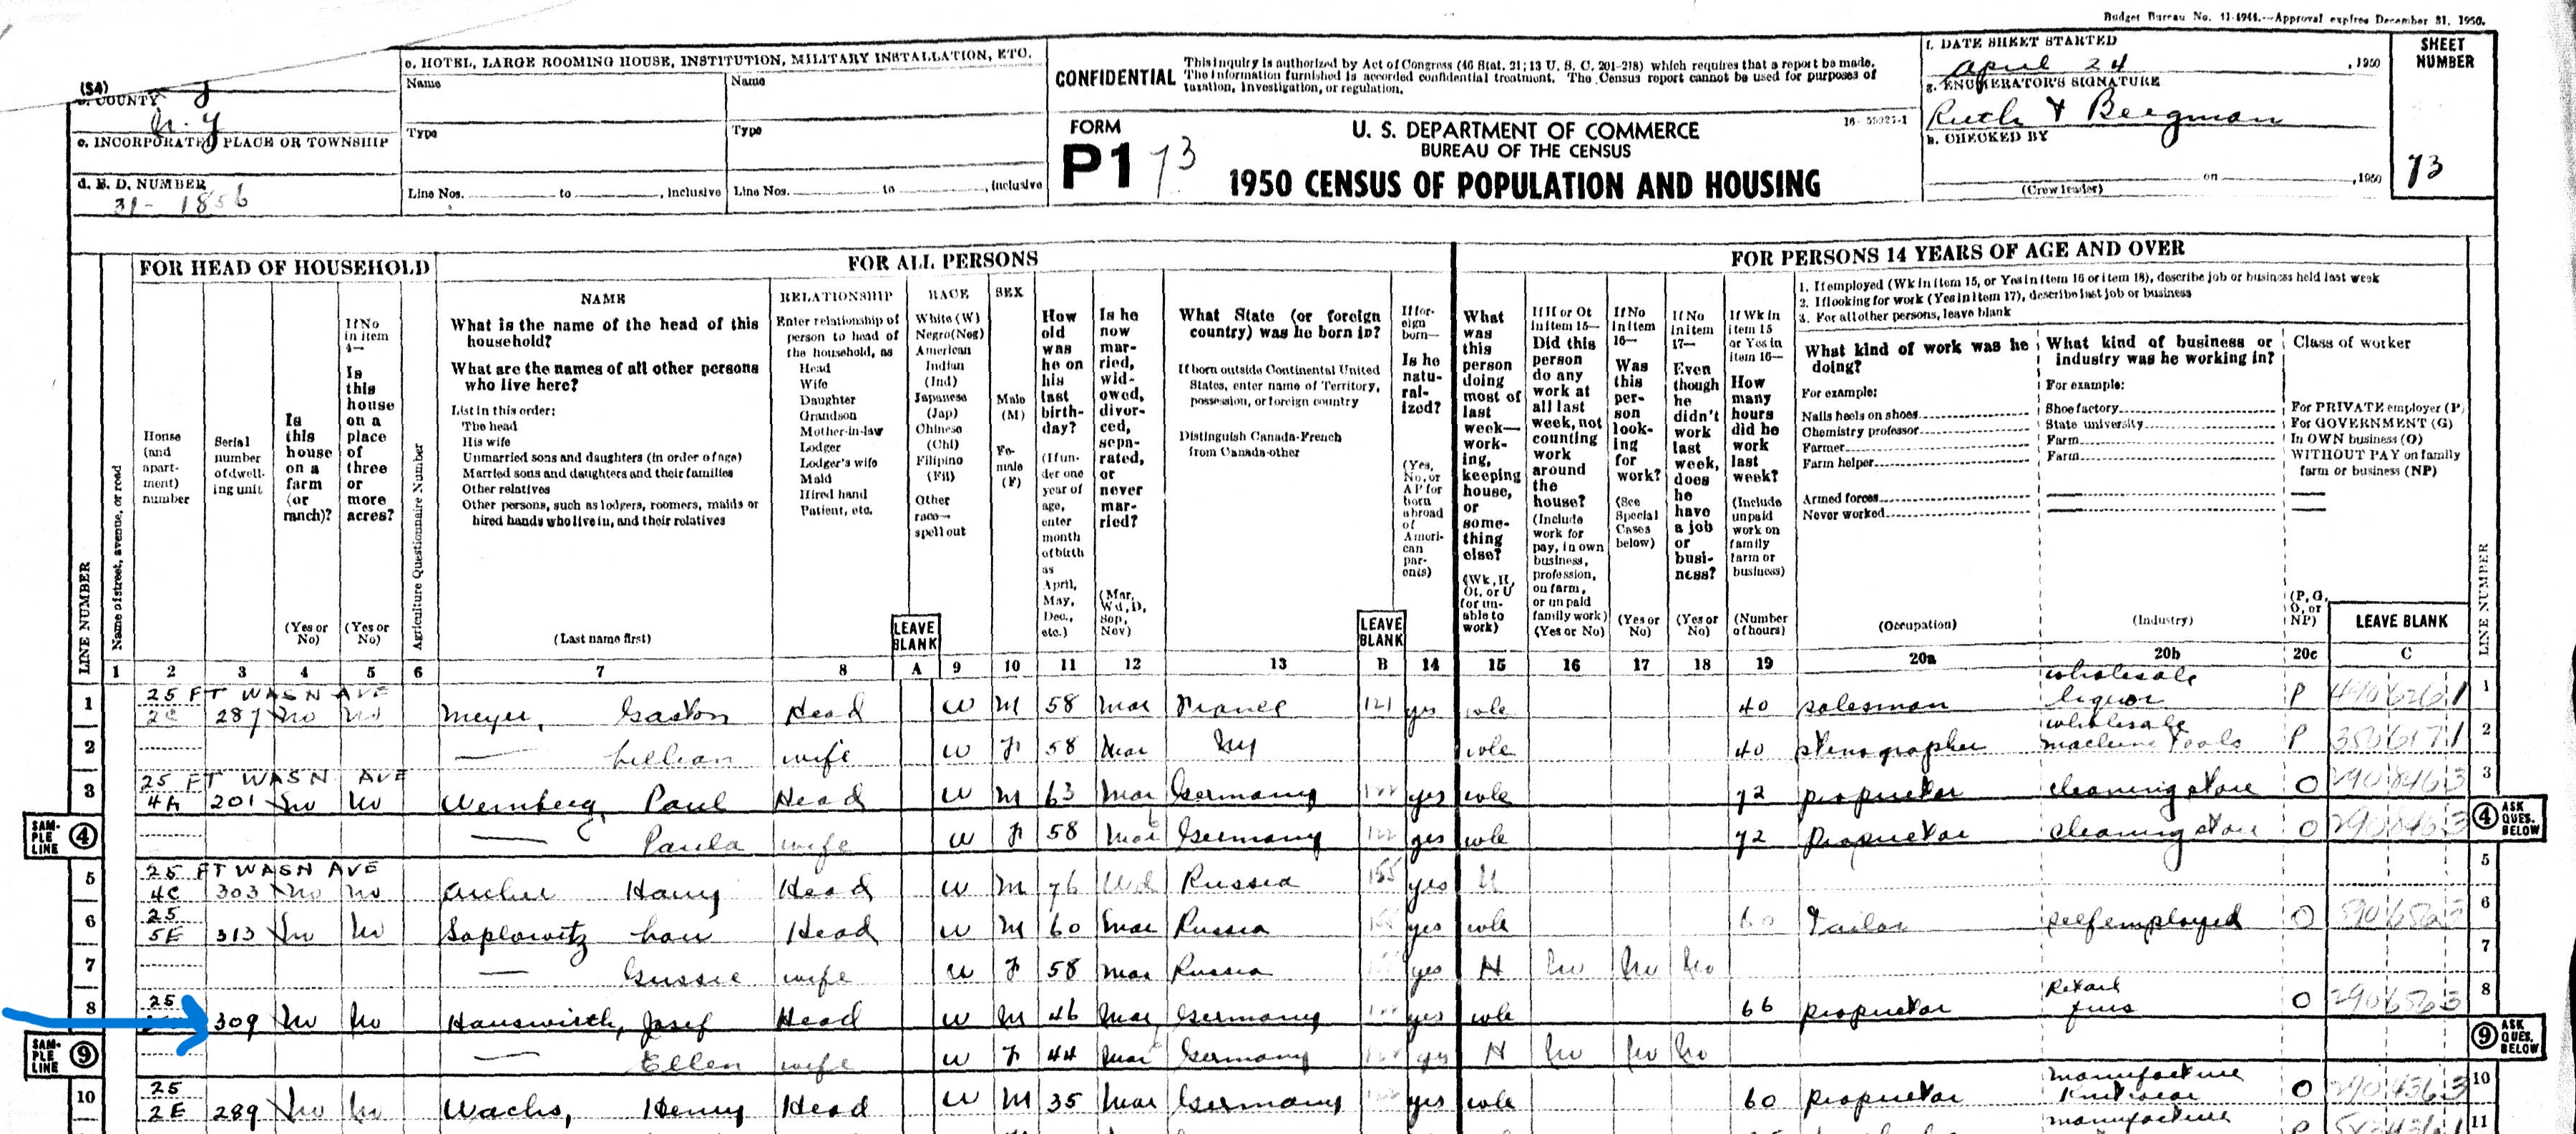 Budget Bureau No. 41-4944.—Approval expires December 31, 1950.
(S4)
COUNTY
N. Y
c. INCORPORATED PLACE OR TOWNSHIP
d. E. D. NUMBER
31- 1856
e. HOTEL, LARGE ROOMING HOUSE, INSTITUTION, MILITARY INSTALLATION, ETC.
Name
Name
Type
Type
Line Nos. to , inclusive
Line Nos. to , inclusive
CONFIDENTIAL
This inquiry is authorized by Act of Congress (46 Stat. 21; 13 U. S. C. 201-218) which requires that a report be made.
The information furnished is accorded confidential treatment. The Census report cannot be used for purposes of
taxation, investigation, or regulation.
FORM
P1
73
U. S. DEPARTMENT OF COMMERCE
BUREAU OF THE CENSUS
1950 CENSUS OF POPULATION AND HOUSING
f. DATE SHEET STARTED
April 24 , 1950
g. ENUMERATOR'S SIGNATURE
Ruth Bergman
h. CHECKED BY
on , 1950
(Crew leader)
SHEET
NUMBER
73
FOR HEAD OF HOUSEHOLD
FOR ALL PERSONS
FOR PERSONS 14 YEARS OF AGE AND OVER
LINE NUMBER
Name of street, avenue, or road
House
(and
apart-
ment)
number
Serial
number
of dwell-
ing unit
Is
this
house
on a
farm
(or
ranch)?
(Yes or
No)
If No
in item
4—
Is
this
house
on a
place
of
three
or
more
acres?
(Yes or
No)
Agriculture Questionnaire Number
NAME
What is the name of the head of this
household?
What are the names of all other persons
who live here?
List in this order:
The head
His wife
Unmarried sons and daughters (in order of age)
Married sons and daughters and their families
Other relatives
Other persons, such as lodgers, roomers, maids or
hired hands who live in, and their relatives
(Last name first)
RELATIONSHIP
Enter relationship of
person to head of
the household, as
Head
Wife
Daughter
Grandson
Mother-in-law
Lodger
Lodger's wife
Maid
Hired hand
Patient, etc.
LEAVE
BLANK
RACE
White (W)
Negro (Neg)
American
Indian
(Ind)
Japanese
(Jap)
Chinese
(Chi)
Filipino
(Fil)
Other
race—
spell out
SEX
Male
(M)
Fe-
male
(F)
How
old
was
he on
his
last
birth-
day?
(If un-
der one
year of
age,
enter
month
of birth
as
April,
May,
Dec.,
etc.)
Is he
now
mar-
ried,
wid-
owed,
divor-
ced,
sepa-
rated,
or
never
mar-
ried?
(Mar,
Wd, D,
Sep,
Nev)
What State (or foreign
country) was he born in?
If born outside Continental United
States, enter name of Territory,
possession, or foreign country
Distinguish Canada-French
from Canada-other
LEAVE
BLANK
If for-
eign
born—
Is he
natu-
ral-
ized?
(Yes,
No, or
AP for
born
abroad
of
Ameri-
can
par-
ents)
What
was
this
person
doing
most of
last
week—
work-
ing,
keeping
house,
or
some-
thing
else?
(Wk, H,
Ot, or U
for un-
able to
work)
If H or Ot
in item 15—
Did this
person
do any
work at
all last
week, not
counting
work
around
the
house?
(Include
work for
pay, in own
business,
profession,
on farm,
or unpaid
family work)
(Yes or No)
If No
in item
16—
Was
this
per-
son
look-
ing
for
work?
(See
Special
Cases
below)
(Yes or
No)
If No
in item
17—
Even
though
he
didn't
work
last
week,
does
he
have
a job
or
busi-
ness?
(Yes or
No)
If Wk in
item 15
or Yes in
item 16—
How
many
hours
did he
work
last
week?
(Include
unpaid
work on
family
farm or
business)
(Number
of hours)
1. If employed (Wk in item 15, or Yes in item 16 or item 18), describe job or business held last week
2. If looking for work (Yes in item 17), describe last job or business
3. For all other persons, leave blank
What kind of work was he
doing?
For example:
Nails heels on shoes
Chemistry professor
Farmer
Farm helper
Armed forces
Never worked
(Occupation)
What kind of business or
industry was he working in?
For example:
Shoe factory
State university
Farm
Farm
(Industry)
Class of worker
For PRIVATE employer (P)
For GOVERNMENT (G)
In OWN business (O)
WITHOUT PAY on family
farm or business (NP)
(P, G,
O, or
NP)
LEAVE BLANK
LINE NUMBER
1 2 3 4 5 6 7 8 A 9 10 11 12 13 B 14 15 16 17 18 19 20a 20b 20c C
25 FT WASN AVE wholesale
1 2C 287 No No Meyer, Gaston Head W M 58 Mar France 121 yes wk 40 salesman liquor P 1
wholesale
2 — Lillian wife W F 58 Mar NY wk 40 stenographer machine tools P 2
25 FT WASN AVE
3 4A 201 No No Weinberg, Paul Head W M 63 Mar Germany yes wk 72 proprietor cleaning store O 3
SAM-
PLE
LINE
4 — Paula wife W F 58 Mar Germany yes wk 72 Proprietor cleaning store O 4
ASK
QUES.
BELOW
25 FT WASN AVE
5 4C 303 No No Archer Harry Head W M 76 Wd Russia 155 yes U 5
25
6 5E 313 No No Soplowitz Head W M 60 Mar Russia yes wk 60 Tailor self employed O 6
7 — Gussie wife W F 58 Mar Russia yes H No No No 7
25 Retail
8 309 No No Hauswirth, Josef Head W M 46 Mar Germany yes wk 66 proprietor furs O 8
SAM-
PLE
LINE
9 — Ellen wife W F 44 Mar Germany yes H No No No 9
ASK
QUES.
BELOW
25 manufacture
10 2E 289 No No Wachs, Henry Head W M 35 Mar Germany yes wk 60 proprietor Knitwear O 10
manufacture
11